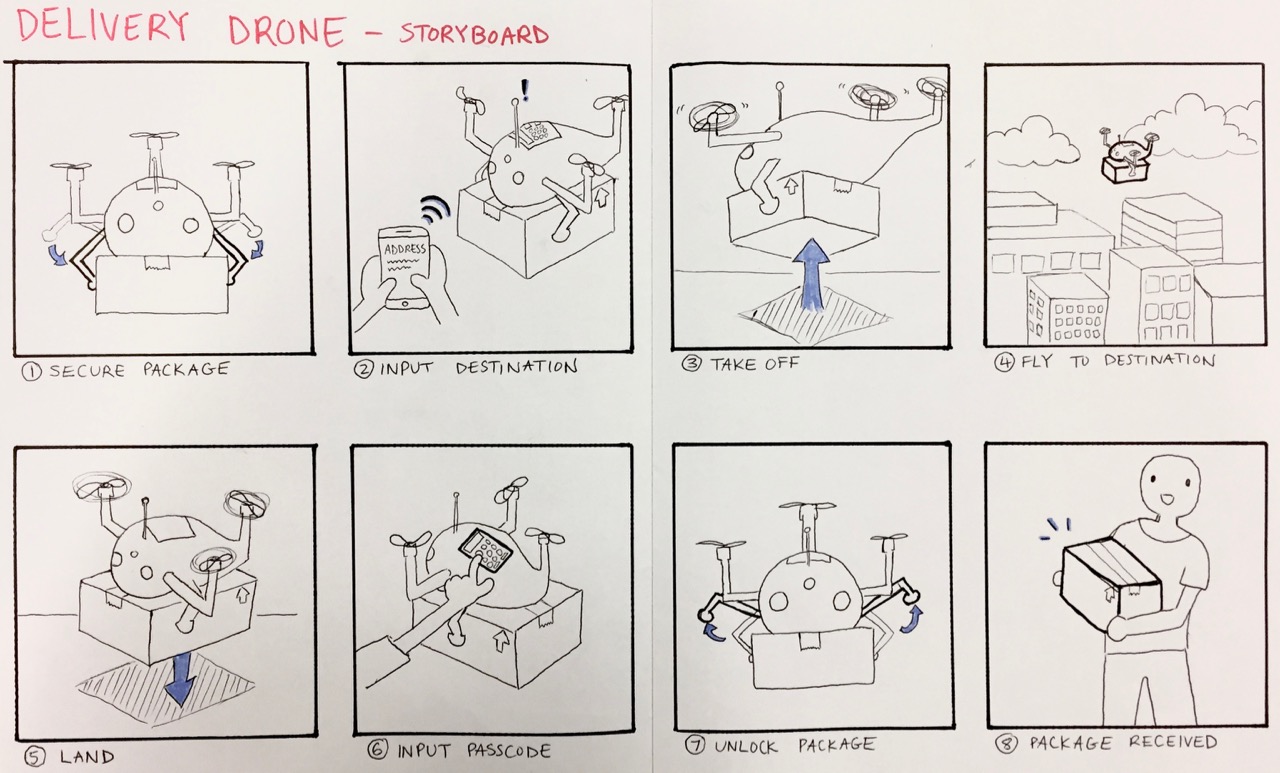 DELIVERY DRONE - STORYBOARD
! 
ADDRESS
① SECURE PACKAGE
② INPUT DESTINATION
③ TAKE OFF
④ FLY TO DESTINATION
⑤ LAND
⑥ INPUT PASSCODE
⑦ UNLOCK PACKAGE
⑧ PACKAGE RECEIVED